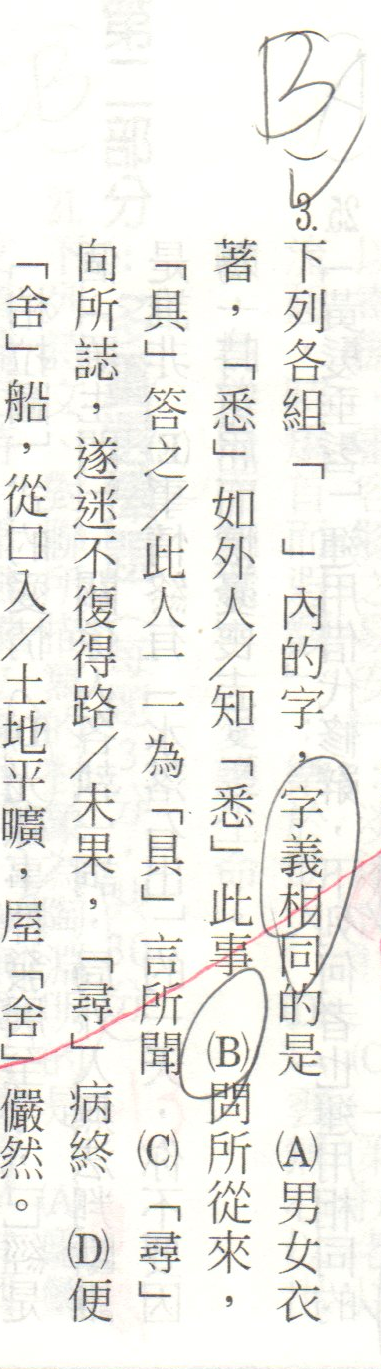 B
）3.下列各組「　」內的字，字義相同的是　(A)男女衣
著，「悉」如外人／知「悉」此事　(B)問所從來，
「具」答之／此人一一為「具」言所聞　(C)「尋」
向所誌，遂迷不復得路／未果，「尋」病終　(D)便
「舍」船，從口入／土地平曠，屋「舍」儼然。